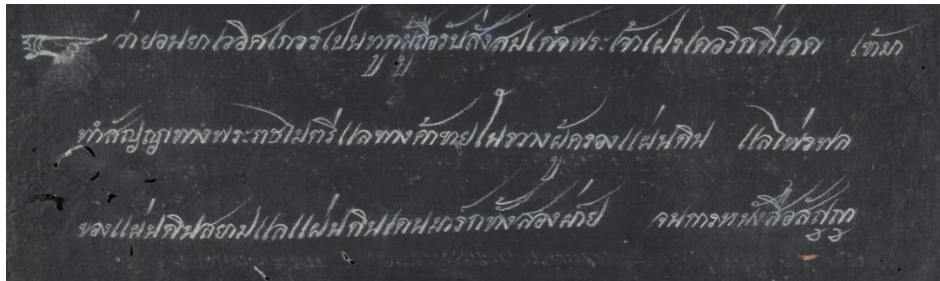 ว่ายอนยาโวิศเกวรเปนทูตผู้ถือรับสั่งสมเดจพระเจ้าเฝรเดอริกที่เจด เข้ามา
ทำสัญญาทางพระราชไมตรีแลทางค้าขายในรวางผู้ครองแผ่นดิน แลไพร่พล
ของแผ่นดินสยามแลแผ่นดินเดนมารักทั้งสองฝ่าย จนการหนังสือสัญญา